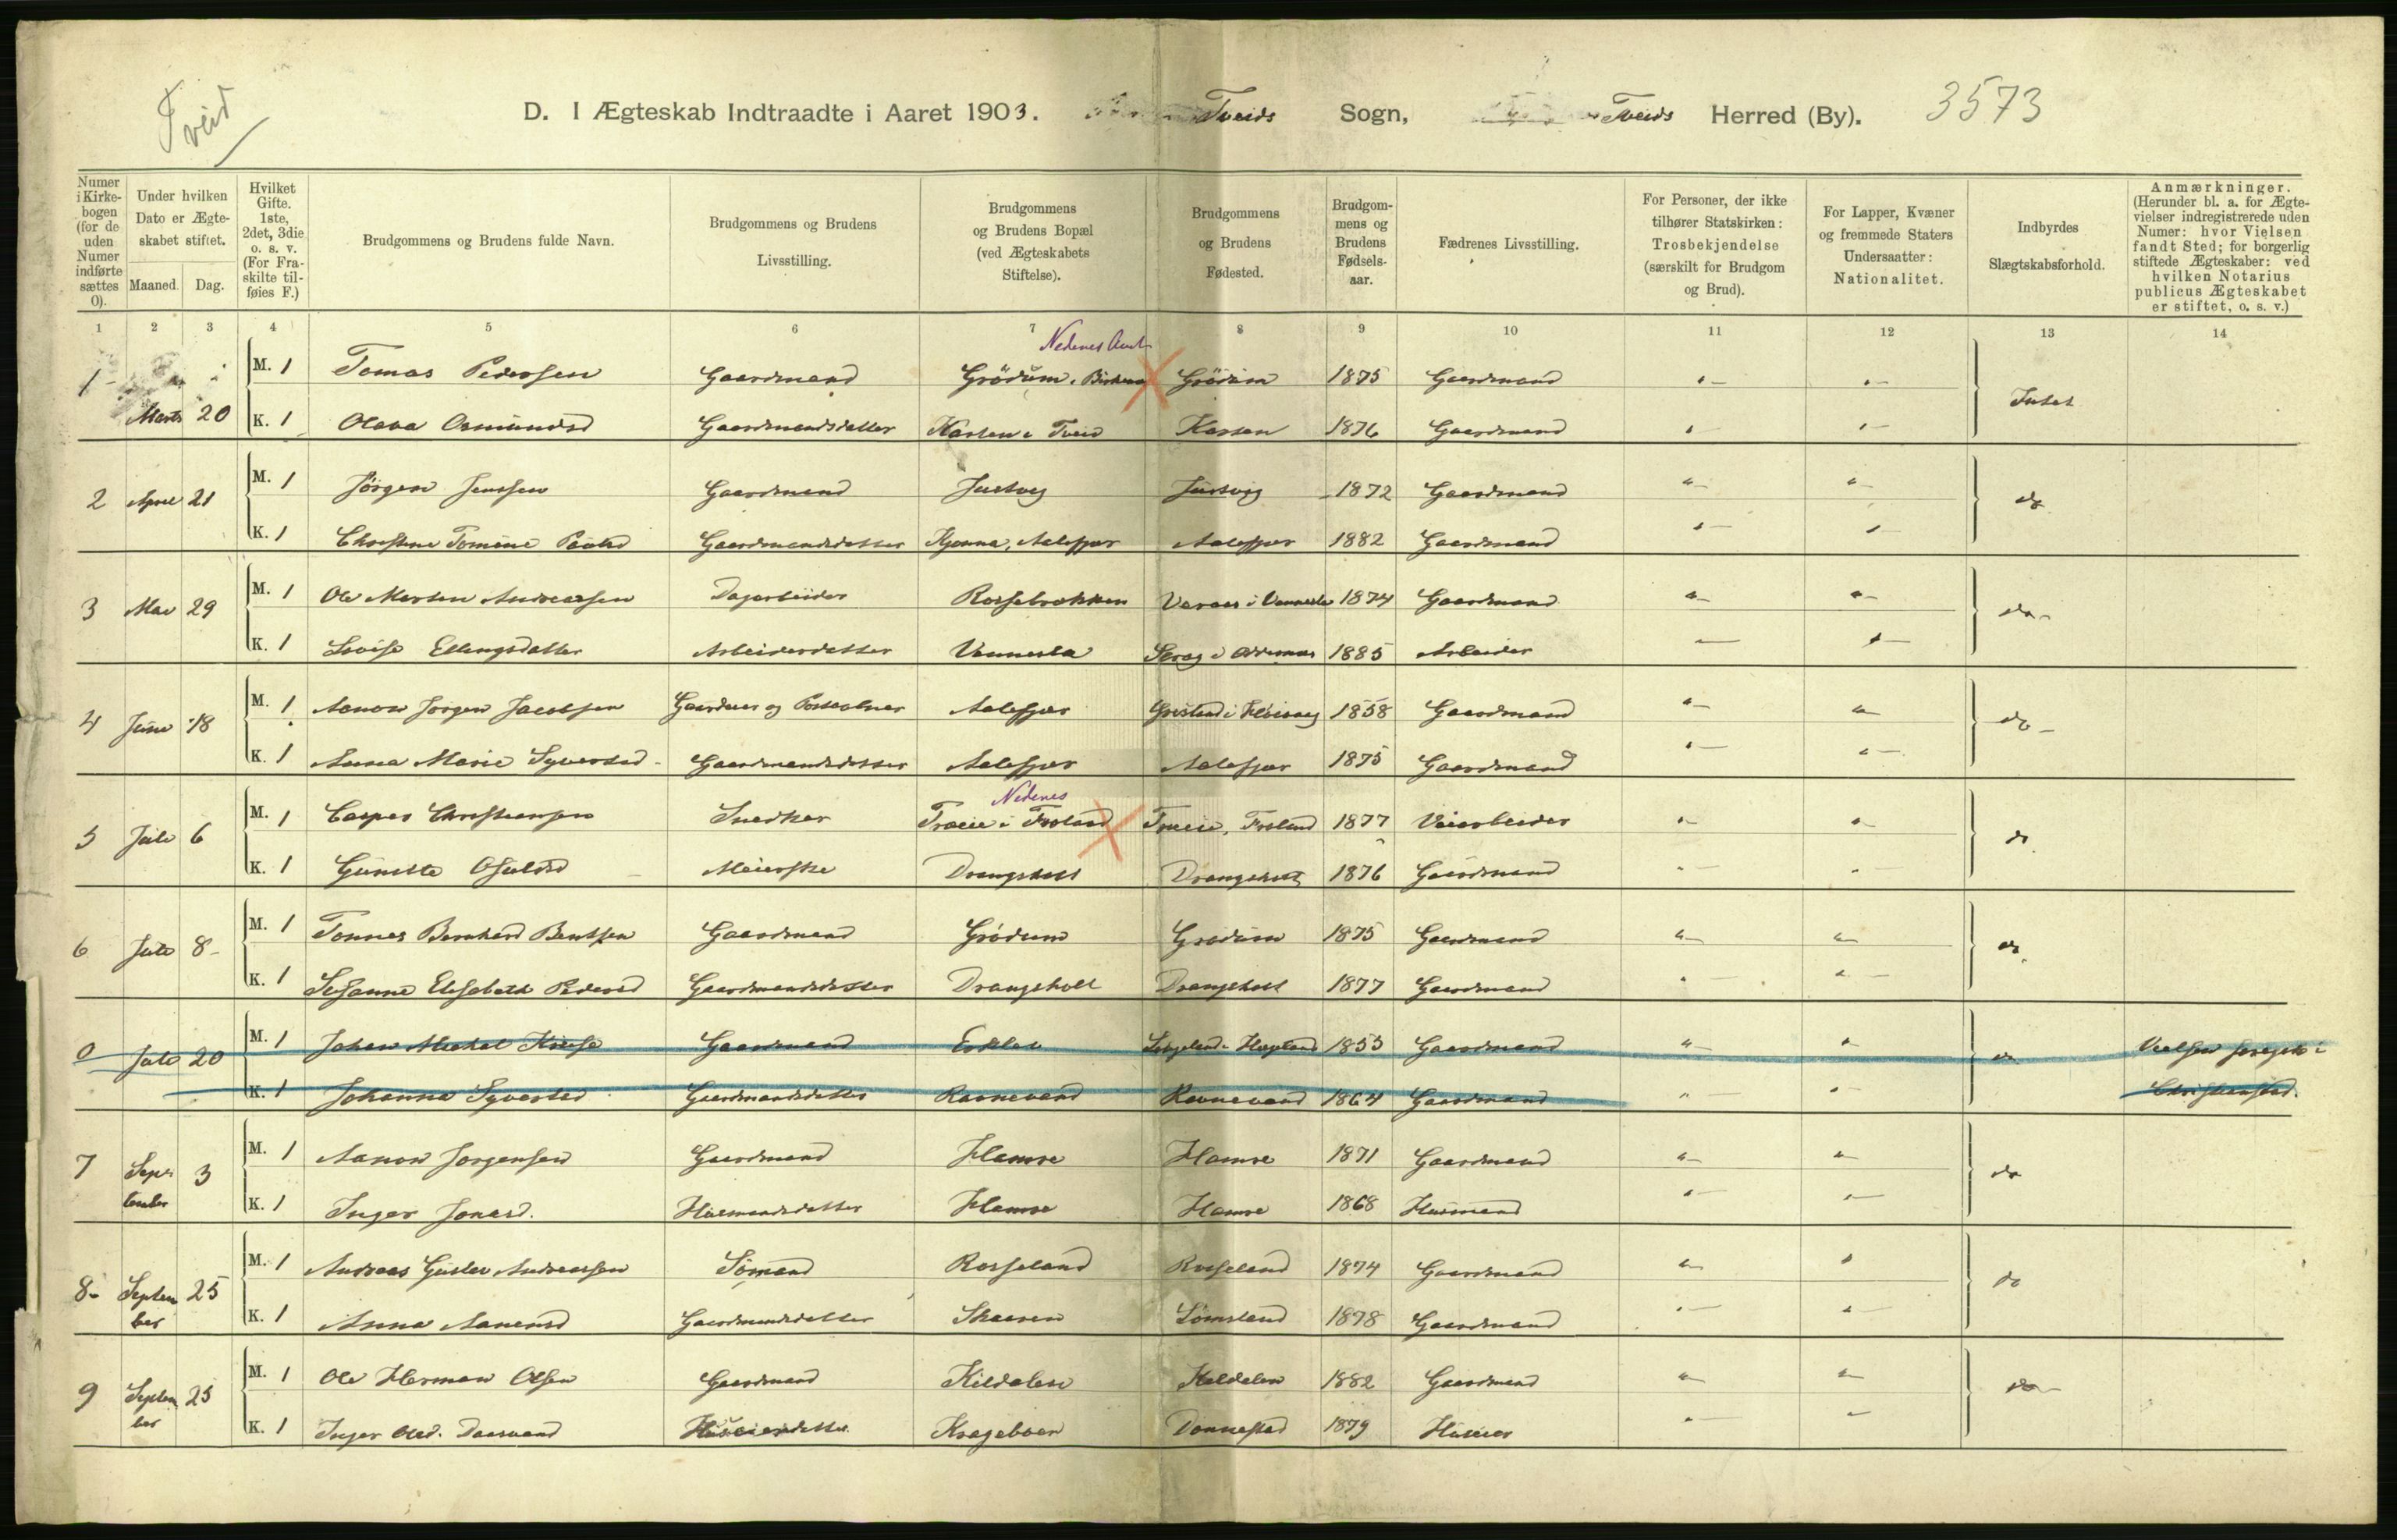 Tveid
D. I Ægteskab Indtraadte i Aaret 1903. Tveids Sogn, Tveids Herred (By). 3573
Numer i Kirkebogen (for de uden Numer indførte sættes 0).
Under hvilken Dato er Ægteskabet stiftet.
Maaned. Dag.
Hvilket Gifte. 1ste, 2det, 3die o. s. v. (For Fraskilte tilføies F.)
Brudgommens og Brudens fulde Navn.
Brudgommens og Brudens Livsstilling.
Brudgommens og Brudens Bopæl (ved Ægteskabets Stiftelse).
Brudgommens og Brudens Fødested.
Brudgommens og Brudens Fødselsaar.
Fædrenes Livsstilling.
For Personer, der ikke tilhører Statskirken: Trosbekjendelse (særskilt for Brudgom og Brud).
For Lapper, Kvæner og fremmede Staters Undersaatter: Nationalitet.
Indbyrdes Slægtskabsforhold.
Anmærkninger. (Herunder bl. a. for Ægtevielser indregistrerede uden Numer: hvor Vielsen fandt Sted; for borgerlig stiftede Ægteskaber: ved hvilken Notarius publicus Ægteskabet er stiftet, o. s. v.)
1 2 3 4 5 6 7 8 9 10 11 12 13 14
Nedenes Amt
1 M. 1 Tomas Pedersen Gaardmand Grödum Grödum 1875 Gaardmand
Marts 20 K. 1 Olava Osmundsd Gaardmandsdatter Tveid 1876 Gaardmand Intet
2 April 21 M. 1 Jörgen Jenssen Gaardmand Justvig Justvig 1872 Gaardmand do
K. 1 Christine Tomine Gaardmandsdatter Aalefjær Aalefjær 1882 Gaardmand
3 Mai 29 M. 1 Ole Morten Andreassen Dagarbeider i Vennesla 1874 Gaardmand do
K. 1 Lovise Ellingsdatter Arbeiderdatter Vennesla 1885 Arbeider
4 Juni 18 M. 1 Aanon Jörgen Jacobsen Gaardmand og Aalefjær 1858 Gaardmand do
K. 1 Anna Marie Syversd Gaardmandsdatter Aalefjær Aalefjær 1875 Gaardmand
Nedenes
5 Juli 6 M. 1 Casper Christiansen Snedker Træeie i Froland Træeie, Froland 1877 Veiarbeider do
K. 1 Gunilde Osuldsd Meierske Drangsholt Drangsholt 1876 Gaardmand
6 Juli 8 M. 1 Tonnes Bernhard Bentsen Gaardmand Grödum Grödum 1875 Gaardmand do
K. 1 Susanne Elisabeth Pedersd Gaardmandsdatter Drangsholt Drangsholt 1877 Gaardmand
0 Juli 20 M. 1 Johan Gaardmand 1853 Gaardmand do Vielsen foregik i
K. 1 Johanna Syversd Gaardmandsdatter Ravnevand Ravnevand 1864 Gaardmand Christianssand.
7 September 3 M. 1 Aanon Jorgensen Gaardmand Hamre Hamre 1871 Gaardmand do
K. 1 Inger Jonasd. Husmandsdatter Hamre Hamre 1868 Husmand
8 September 25 M. 1 Andreas Gustav Andreassen Sömand Rosseland Rosseland 1874 Gaardmand do
K. 1 Anna Aanensd Gaardmandsdatter Skaaren Lömsland 1878 Gaardmand
9 September 25 M. 1 Ole Herman Olsen Gaardmand Kildalen Kildalen 1882 Gaardmand do
K. 1 Inger Olsd. Daasvand Huseierdatter Krageboen Donnestad 1879 Huseier